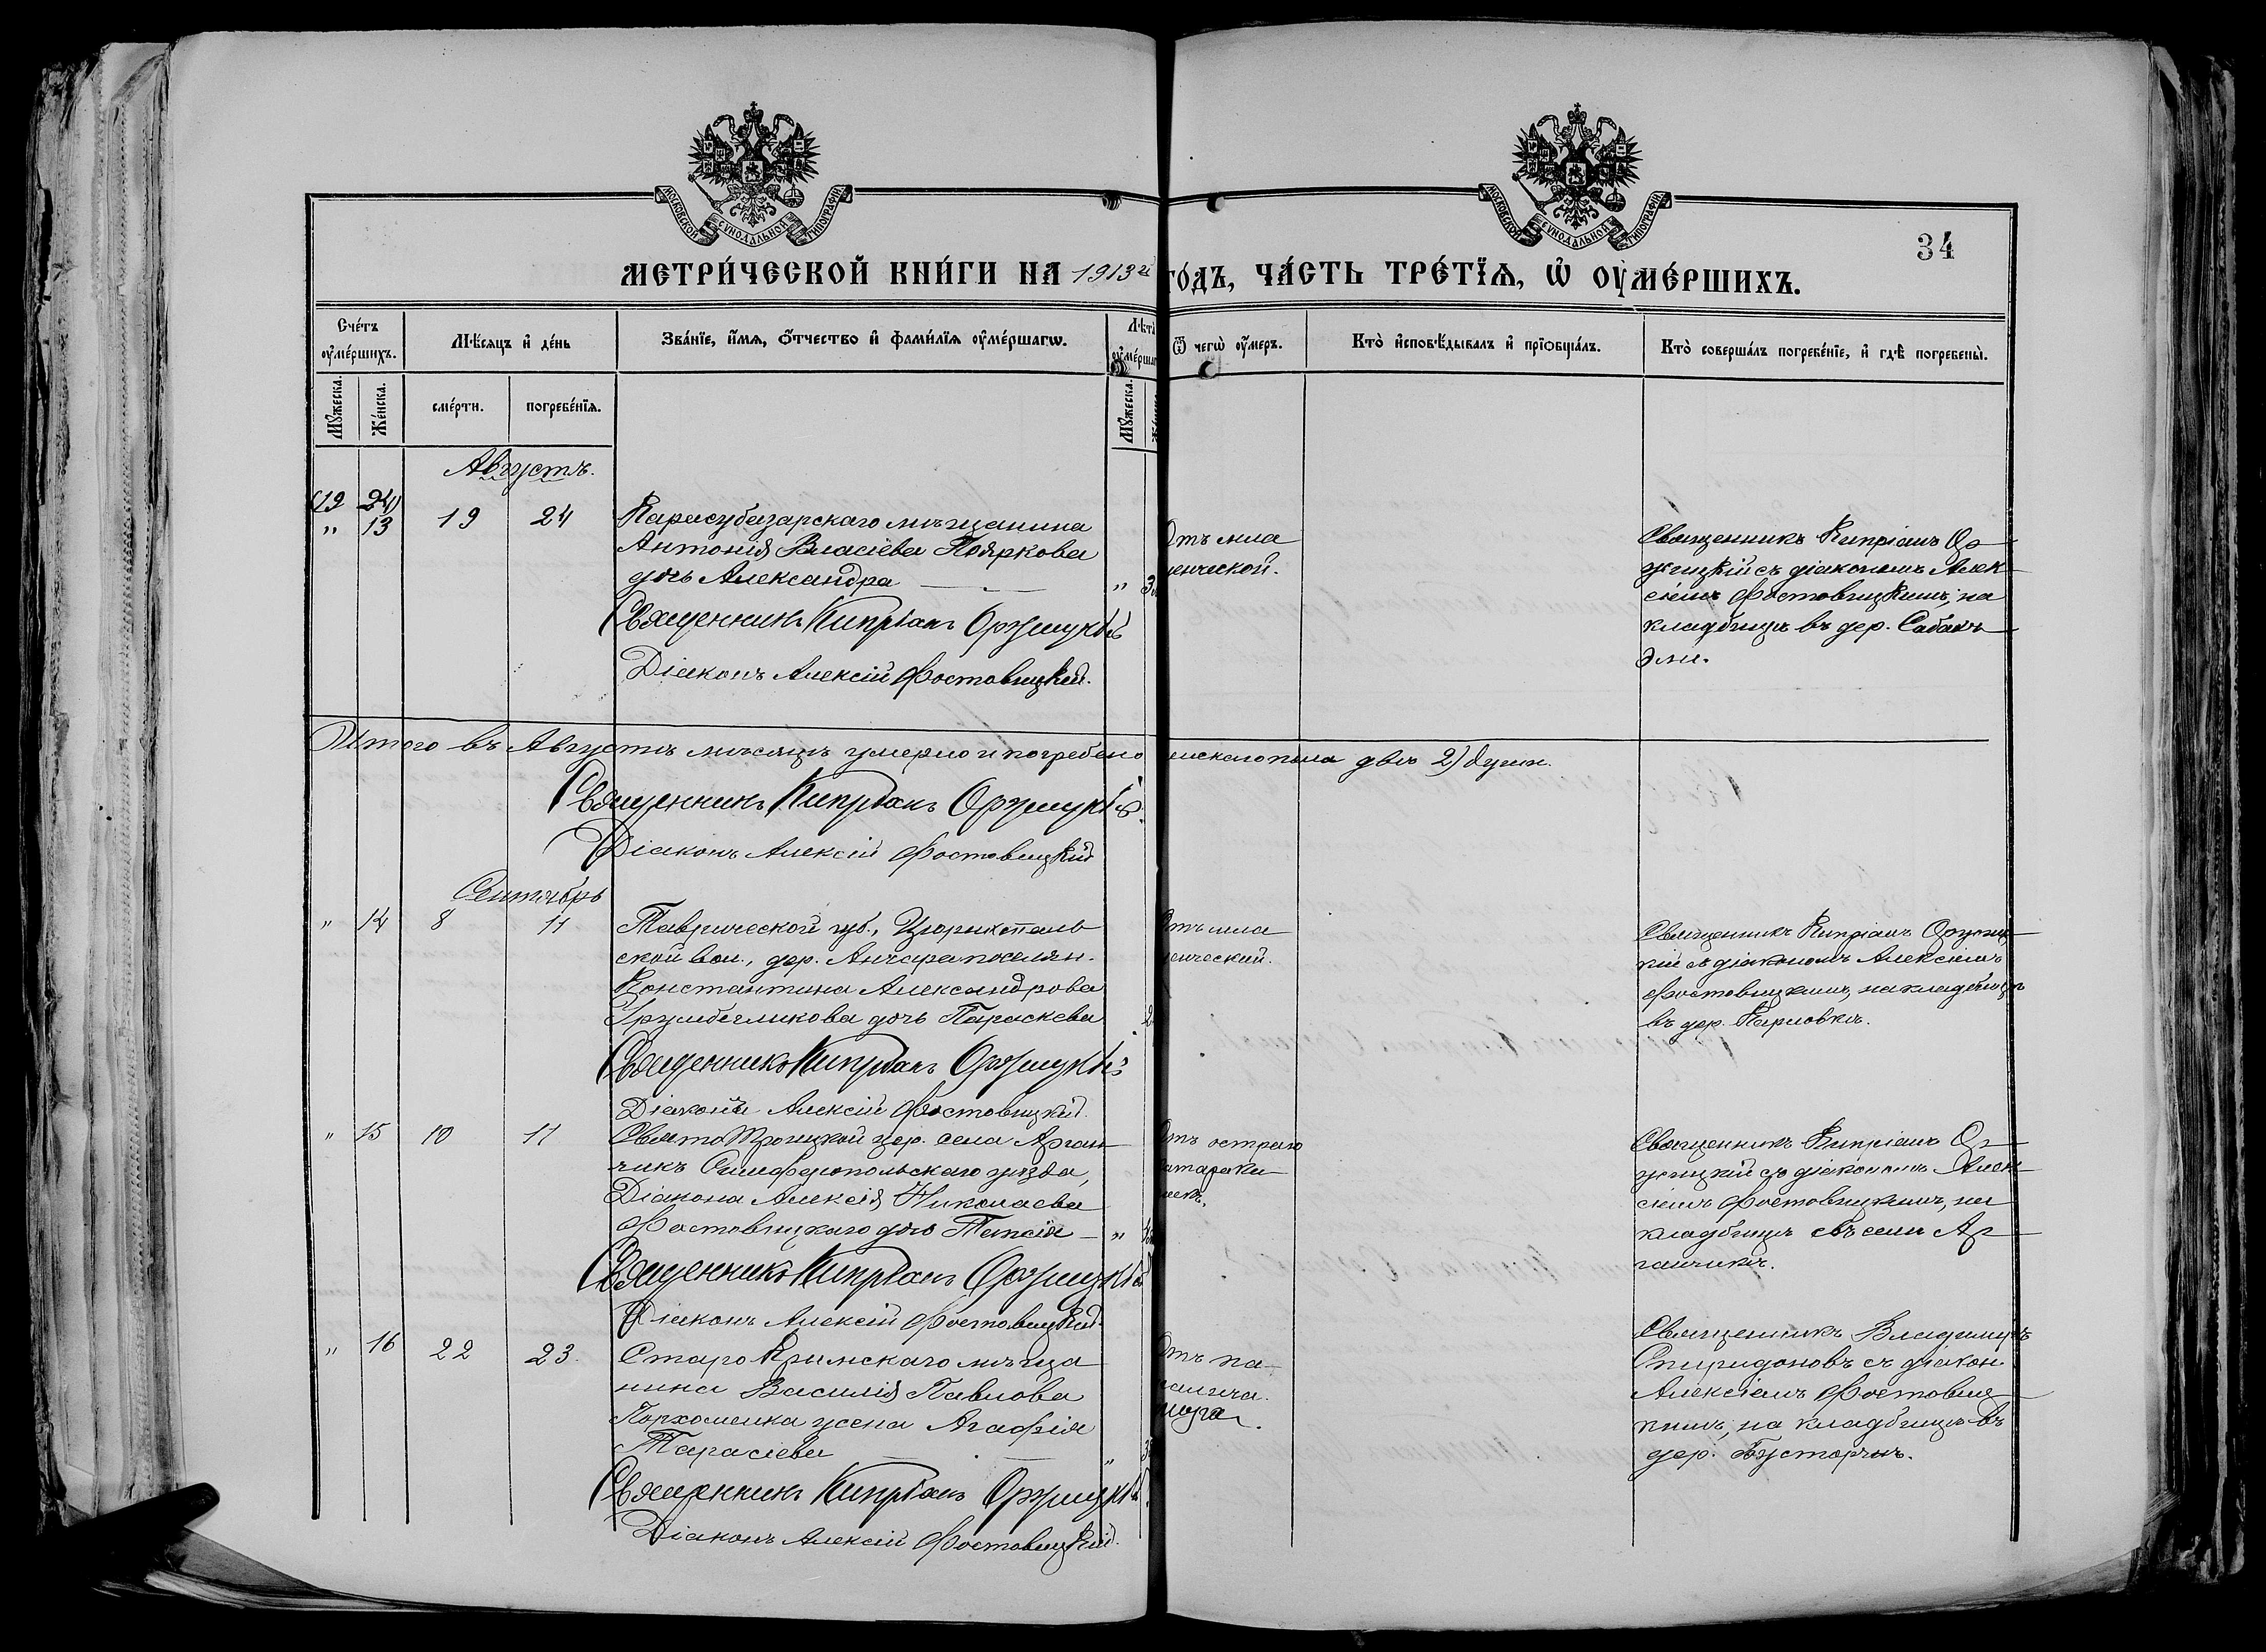 МОСКОВСКОЙ СѴНОДАЛЬНОЙ ТИПОГРАФІИ
МОСКОВСКОЙ СѴНОДАЛЬНОЙ ТИПОГРАФІИ
34
МЕТРИ́ЧЕСКОЙ КНИ́ГИ НА 1913й
ГО́ДЪ, ЧА́СТЬ ТРЕ́ТЇѦ, Ѽ ОУМЕ́РШИХЪ.
Сче́тъ оумéршихъ.
Мѣ́сяцъ и́ де́нь
Зва́нїе, и́мѧ, ѻ́тчество и́ фами́лїѧ оумéршагѡ.
Лѣта̀
Ѿ чегѡ̀ оу́меръ.
Кто̀ и҆сповѣ́дывалъ и҆ прїѡбща́лъ.
Кто̀ соверша́лъ погребе́нїе, и҆ гдѣ̀ погребены̀.
Мꙋ́жеска.
Же́нска.
сме́рти.
погребе́нїѧ.
Мꙋ́жеска.
Августъ.
(19 24)
" 13 19 24 Карасубазарскаго мѣщанина
Антонія Власіева Пояркова
дочь Александра " 3
Священникъ Кипріанъ Оржицкій
Діаконъ Алексій Фостовицкій.
Отъ мла
денческой.
Священникъ Кипріанъ Ор
жицкій съ діакономъ Алек
сіемъ Фостовицкимъ, на
кладбищѣ въ дер. Сабакъ
Эли.
Итого въ Августѣ мѣсяцѣ умерло и погребено женскаго пола двѣ 2) души.
Священникъ Кипріанъ Оржицкій.
Діаконъ Алексій Фостовицкій
Сентябрь
" 14 8 11 Таврической губ., Цюрихталь
ской вол., дер. поселян.
Константина Александрова
дочь Параскева 2
Священникъ Кипріанъ Оржицкій
Діаконъ Алексій Фостовицкій.
Отъ мла
денческий.
Священникъ Кипріанъ Оржиц
кій съ діакономъ Алексіемъ
Фостовицкимъ, на кладбищѣ
въ дер. Карловкѣ.
" 15 10 11 Свято Троицкой цер. села Арган
чикъ Симферопольскаго уѣзда,
Діакона Алексія Николаева
Фостовицкаго дочь Таисія "
Священникъ Кипріанъ Оржицкій
Діаконъ Алексій Фостовицкій.
Отъ остраго
катара ки
шекъ.
Священникъ Кипріанъ Ор
жицкій съ діакономъ Алек
сіемъ Фостовицкимъ, на
кладбищѣ въ селѣ Ар
ганчикъ.
" 16 22 23. Старо Крымскаго мѣща
нина Василія Павлова
Пархоменка жена Агафія
Тарасіева " 3
Священникъ Кипріанъ Оржицкій.
Діаконъ Алексій Фостовицкій.
Отъ па
ралича
Священникъ Владиміръ
Спиридоновъ съ діакон.
Алексіемъ Фостовиц
кимъ, на кладбищѣ въ
дер. Бусторчѣ.